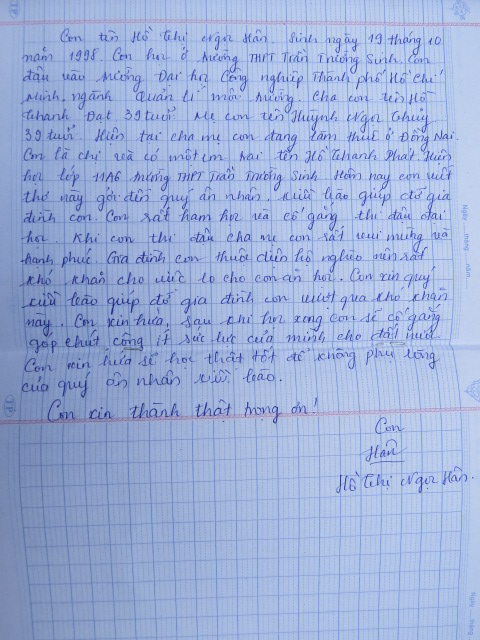 Con tên Hồ Thị Ngọc Hân. Sinh ngày 19 tháng 10
năm 1998. Con học ở trường THPT Trần Trường Sinh. Con
đậu vào trường Đại học Công nghiệp Thành phố Hồ Chí
Minh, ngành Quản lí môi trường. Cha con tên Hồ
Thanh Đạt 39 tuổi. Mẹ con tên Huỳnh Ngọc Thúy
39 tuổi. Hiện tại cha mẹ con đang làm thuê ở Đồng Nai.
Con là chị và có một em trai tên Hồ Thanh Phát Hiện
học lớp 11A6 trường THPT Trần Trường Sinh. Hôm nay con viết
thơ này gởi đến quý ân nhân, kiều bào giúp đỡ gia
đình con. Con rất ham học và cố gắng thi đậu đại
học. Khi con thi đậu cha mẹ con rất vui mừng và
hạnh phúc. Gia đình con thuộc diện hộ nghèo nên rất
khó khăn cho việc lo cho con ăn học. Con xin quý
kiều bào giúp đỡ gia đình con vượt qua khó khăn
này. Con xin hứa, sau khi học xong con sẽ cố gắng
góp chút công ít sức lực của mình cho đất nước.
Con xin hứa sẽ học thật tốt để không phụ lòng
của quý ân nhân kiều bào.
Con xin thành thật mang ơn!
Con
Hân
Hồ Thị Ngọc Hân.